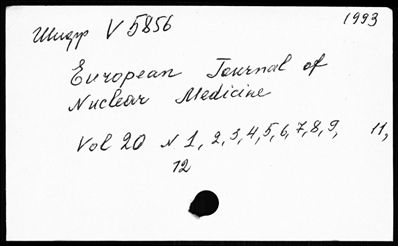 Шифр V 5856
1993
European Journal of
Nuclear Medicine
Vol 20 N 1, 2, 3, 4, 5, 6, 7, 8, 9, 11,
12